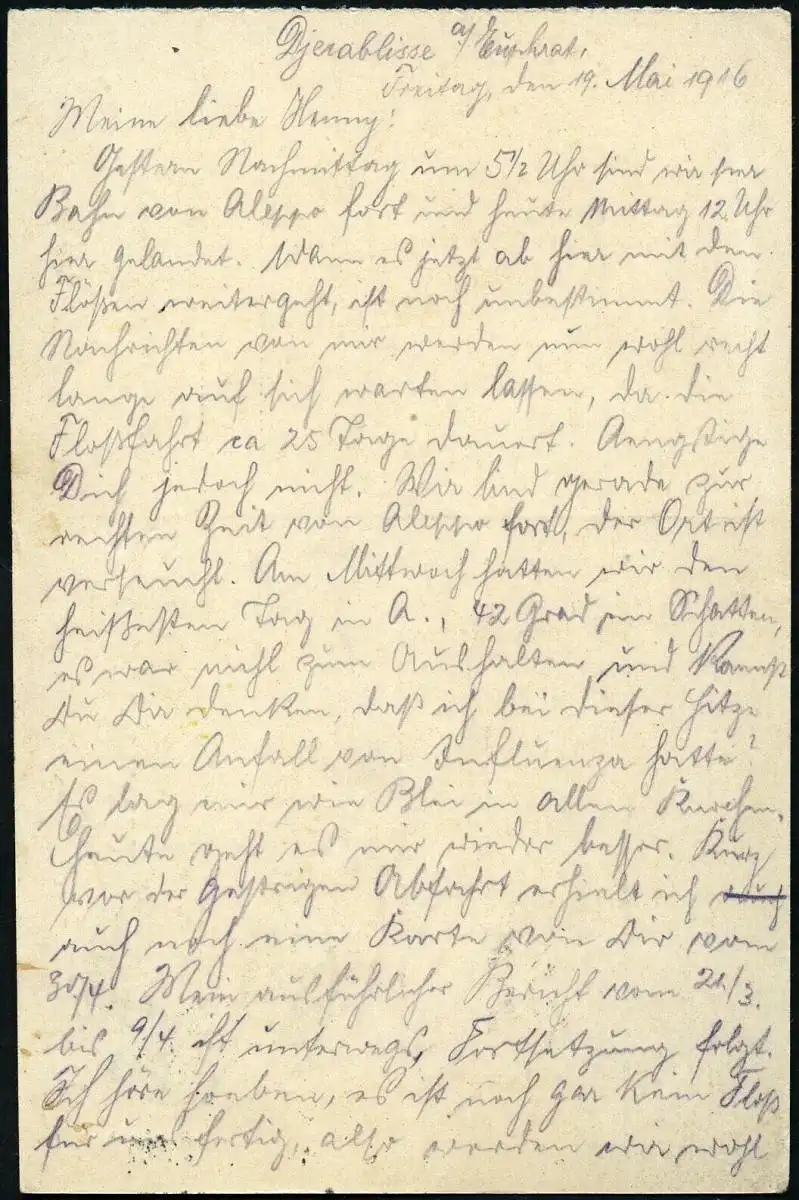 Djerablisse a/ Euphrat,
Freitag, den 19. Mai 1916
Meine liebe Henny!
Gestern Nachmittag um 5½ Uhr sind wir per
Bahn von Aleppo fort und heute Mittag 12 Uhr
hier gelandet. Wann es jetzt ab hier mit den
Flößen weitergeht, ist noch unbestimmt. Die
Nachrichten von mir werden nun wohl recht
lange auf sich warten lassen, da die
Floßfahrt ca 25 Tage dauert. Aengstige
Dich jedoch nicht. Wir sind gerade zur
rechten Zeit von Aleppo fort, der Ort ist
verseucht. Am Mittwoch hatten wir den
heißesten Tag in A., 42 Grad im Schatten,
es war nicht zum Aushalten und kannst
Du Dir denken, daß ich bei dieser Hitze
einen Anfall von Influenza hatte?
Es lag mir wie Blei in allen Knochen.
Heute geht es mir wieder besser. Kurz
vor der gestrigen Abfahrt erhielt ich
auch noch eine Karte von Dir vom
30/4. Mein ausführlicher Bericht vom 21/3.
bis 9/4 ist unterwegs, Fortsetzung folgt.
Ich höre soeben, es ist noch gar kein Floß
für uns fertig, also werden wir wohl